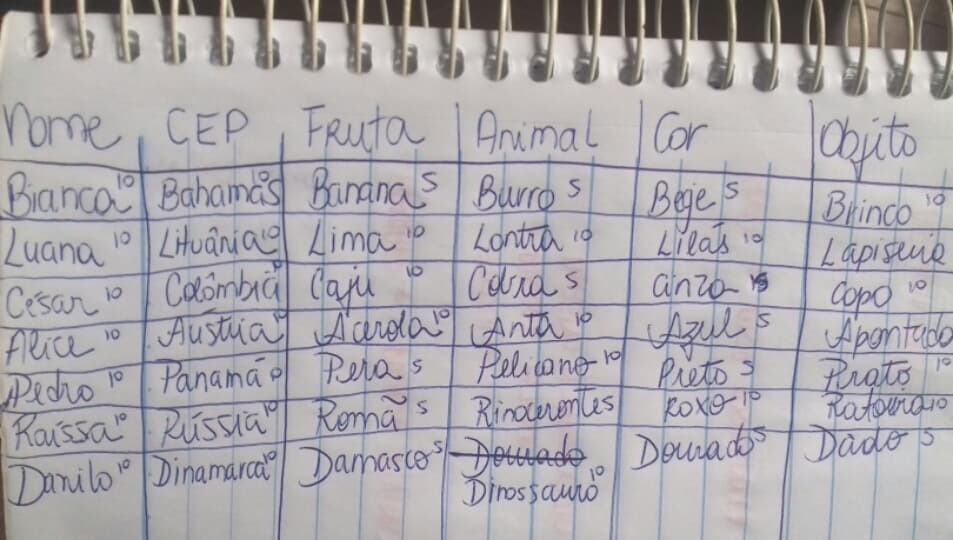 Nome CEP Fruta Animal Cor Objito
Bianca 10 Bahamas 10 Banana 5 Burro 5 Bege 5 Brinco 10
Luana 10 Lituânia 10 Lima 10 Lontra 10 Lilás 10 Lapiseira
César 10 Colômbia 10 Caju 10 Cobra 5 Cinza Copo 10
Alice 10 Áustria 10 Acerola 10 Anta 10 Azul 5 Apontado
Pedro 10 Panamá Pera 5 Pelicano 10 Preto 5 Prato 10
Raíssa 10 Rússia 10 Romã 5 Rinocerontes Roxo 10 Ratoeira 10
Danilo 10 Dinamarca 10 Damasco 5 Dourado Dourado 5 Dado 5
Dinossauro 10